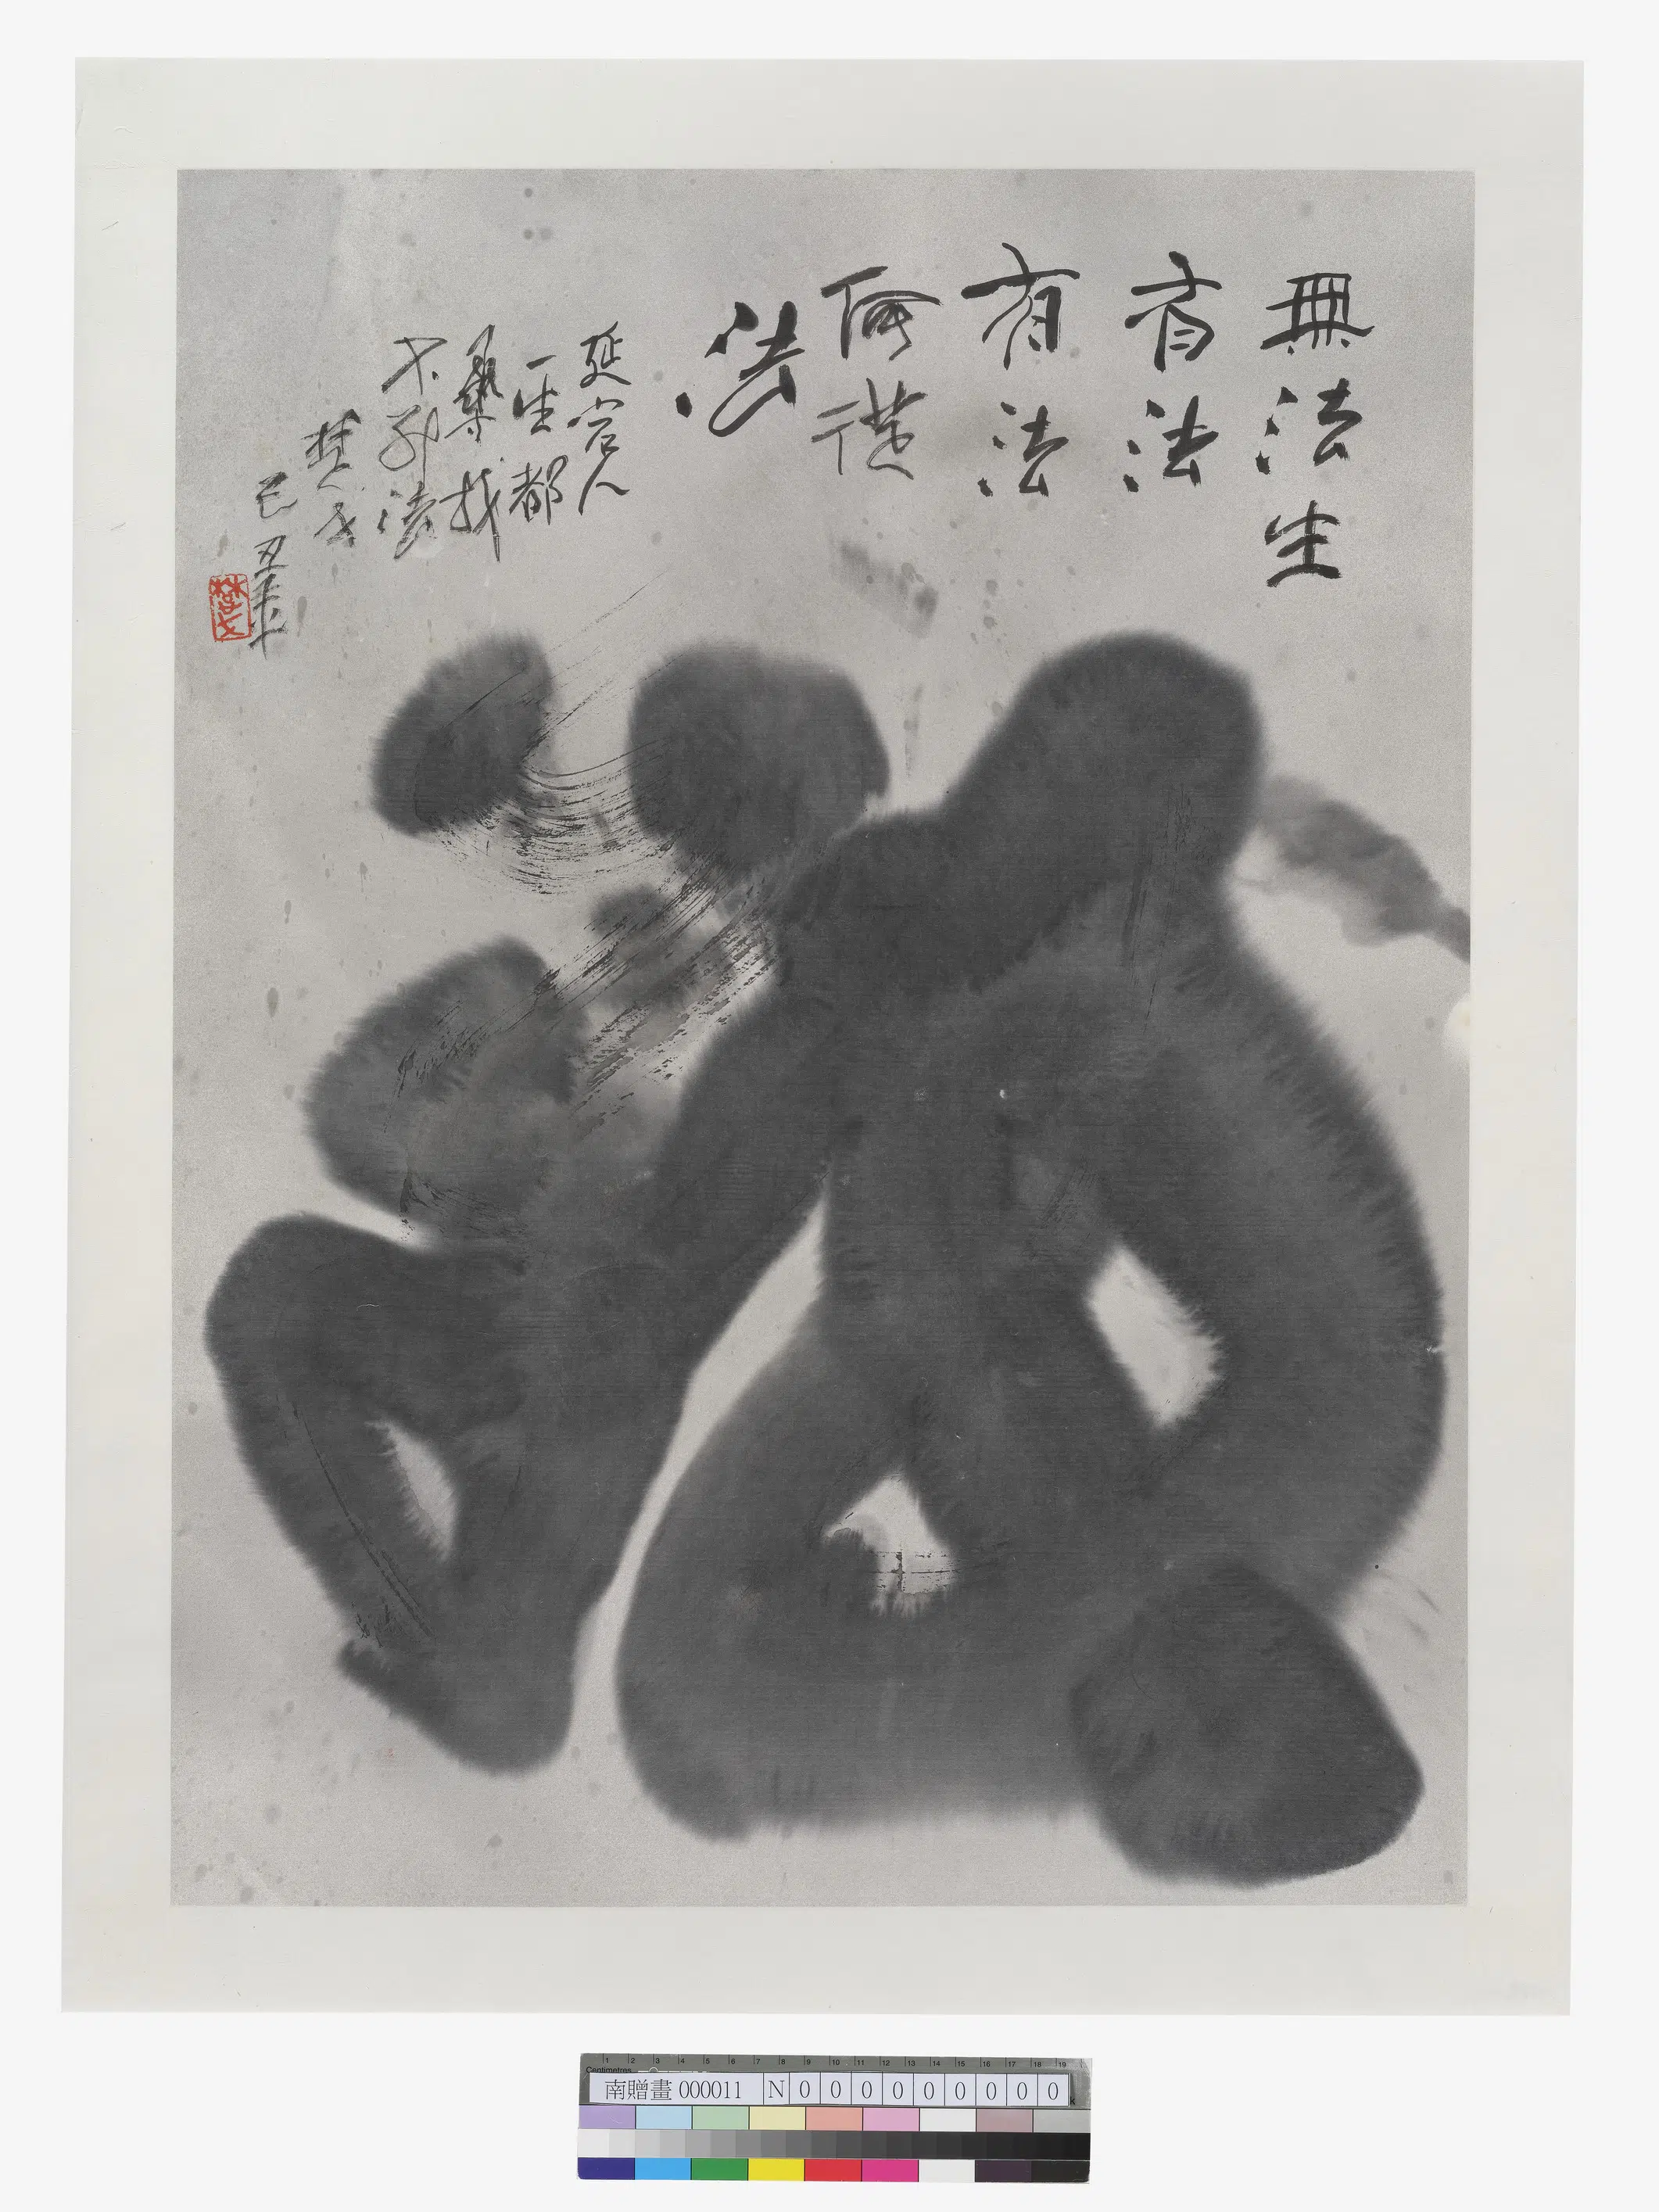 無法生
有法
有法
何從
法
人
一生都
尋找
不到法
楚戈
己丑年
楚戈
Centimetres
1 2 3 4 5 6 7 8 9 10 11 12 13 14 15 16 17 18 19
南贈畫 000011 N 0 0 0 0 0 0 0 0 0